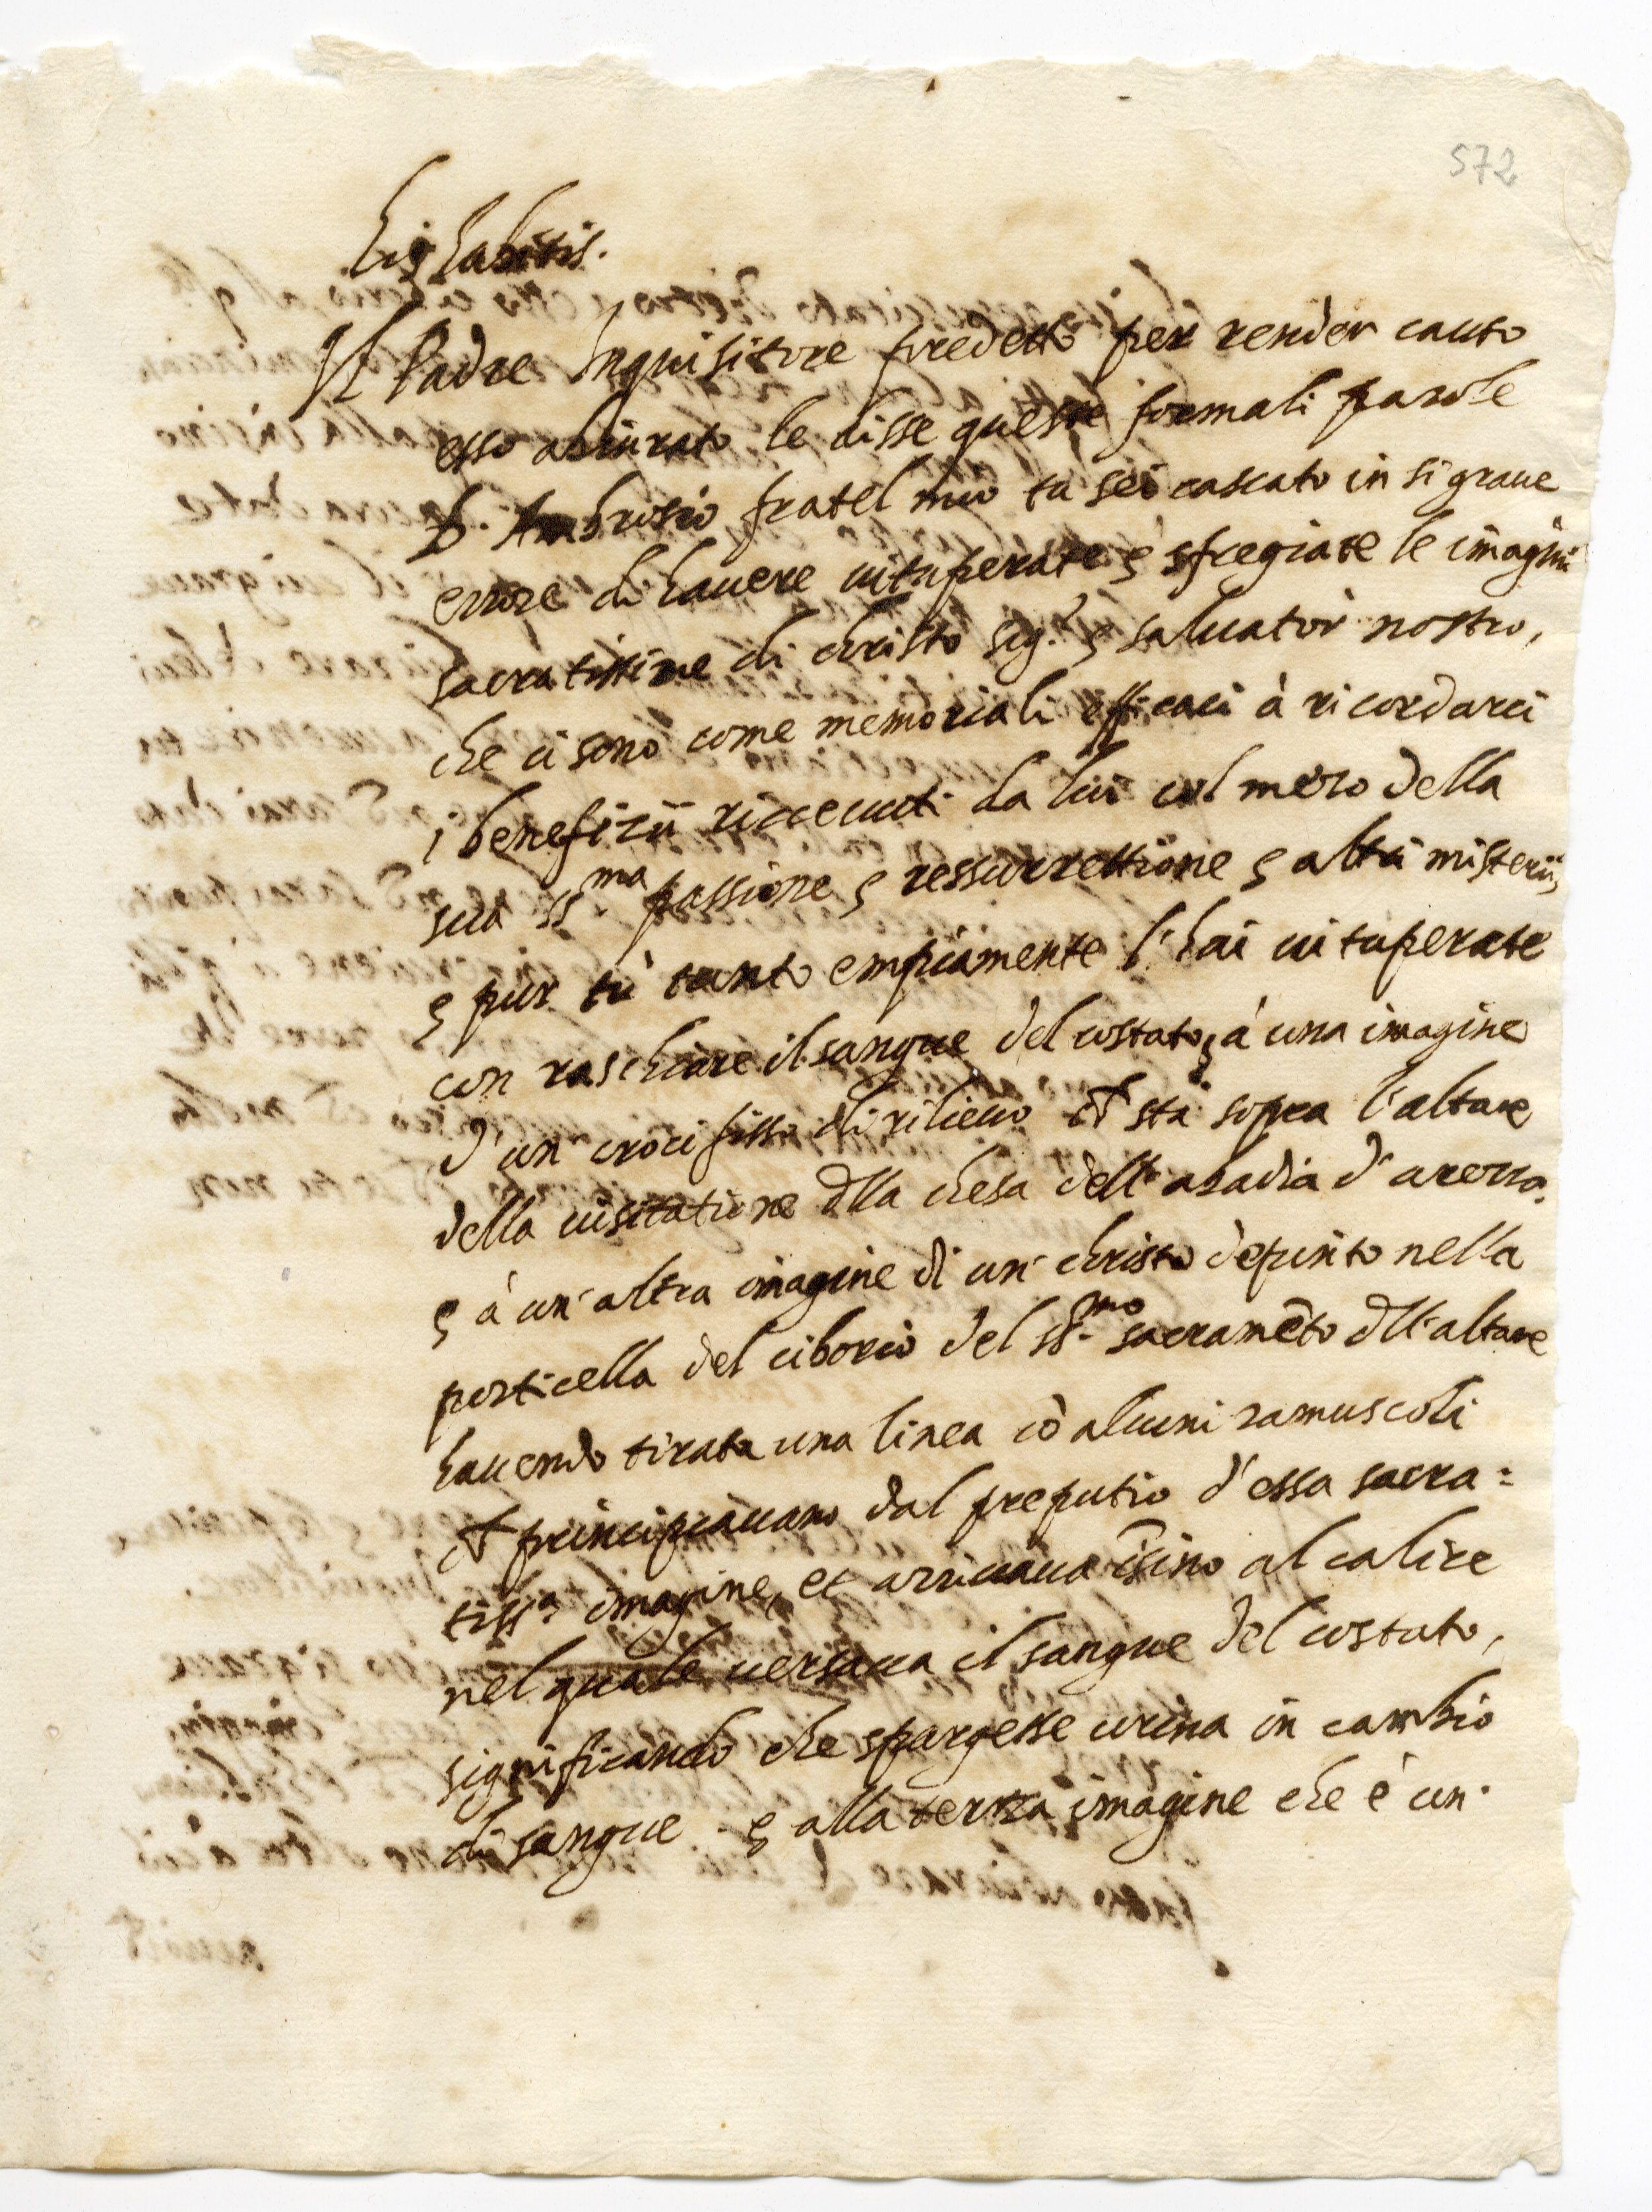 572
his habitis.
Il Padre Inquisitore predetto per render cauto
esso abiurato le disse queste formali parole
D. Ambrosio fratel mio tu sei cascato in si graue
errore di hauere uituperate e sfregiate le imagini
sacratissime di christo sig.r e saluator nostro,
che ci sono come memoriali efficaci à ricordarci
i benefizii riceuuti da lui col mezo della
sua ss.ma passione e ressurrettione e altri misterii,
e pur tù tanto empiamente l'hai uituperate
con raschiare il sangue del costato, à una imagine
d'un crocifisso di rilieuo ch' sta sopra l'altare
della uisitatione dlla chesa dell'abadia d'arezzo.
e à un'altra imagine di un christo depinto nella
porticella del ciborio del ss.mo sacramēto dll'altare
hauendo tirata una linea cō alcuni ramuscoli
ch' principiauano dal preputio d'essa sacra=
tiss.a imagine, et arriuaua īsino al calice
nel quale uersaua il sangue del costato,
significando che spargesse urina in cambio
di sangue. e alla terza imagine che è un'